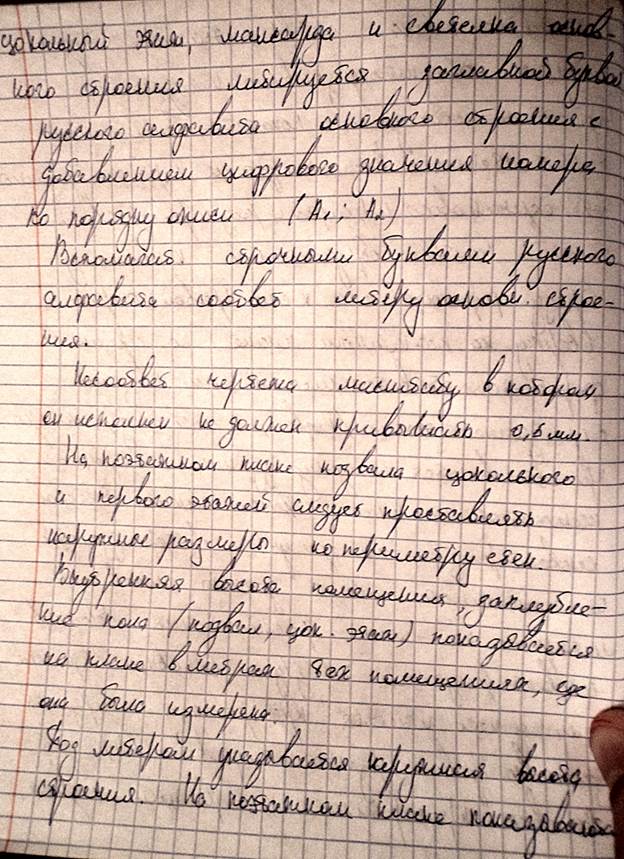 цокальный этаж, мансарда и светелка основ-
ного строения литируется заглавной буквой
русского алфавита основного строения с
добавлением цифрового значения номера
по порядку описи (А1; А2)
Вспомагат. строчными буквами русского
алфавита соответ литеру основн. строе-
ния.
Несоответ чертежа масштабу в котором
он исполнен не должен привышать 0,5 мм.
На поэтажном плане подвала цокольного
и первого этажей следует проставлять
наружные размеры по периметру стен.
Внутренняя высота помещения, заглубле-
ние пола (подвал, цок. этаж) показывается
на плане в метрах тех помещениях, где
она была измерена.
Под литером указывается наружная высота
строения. На поэтажном плане показываются